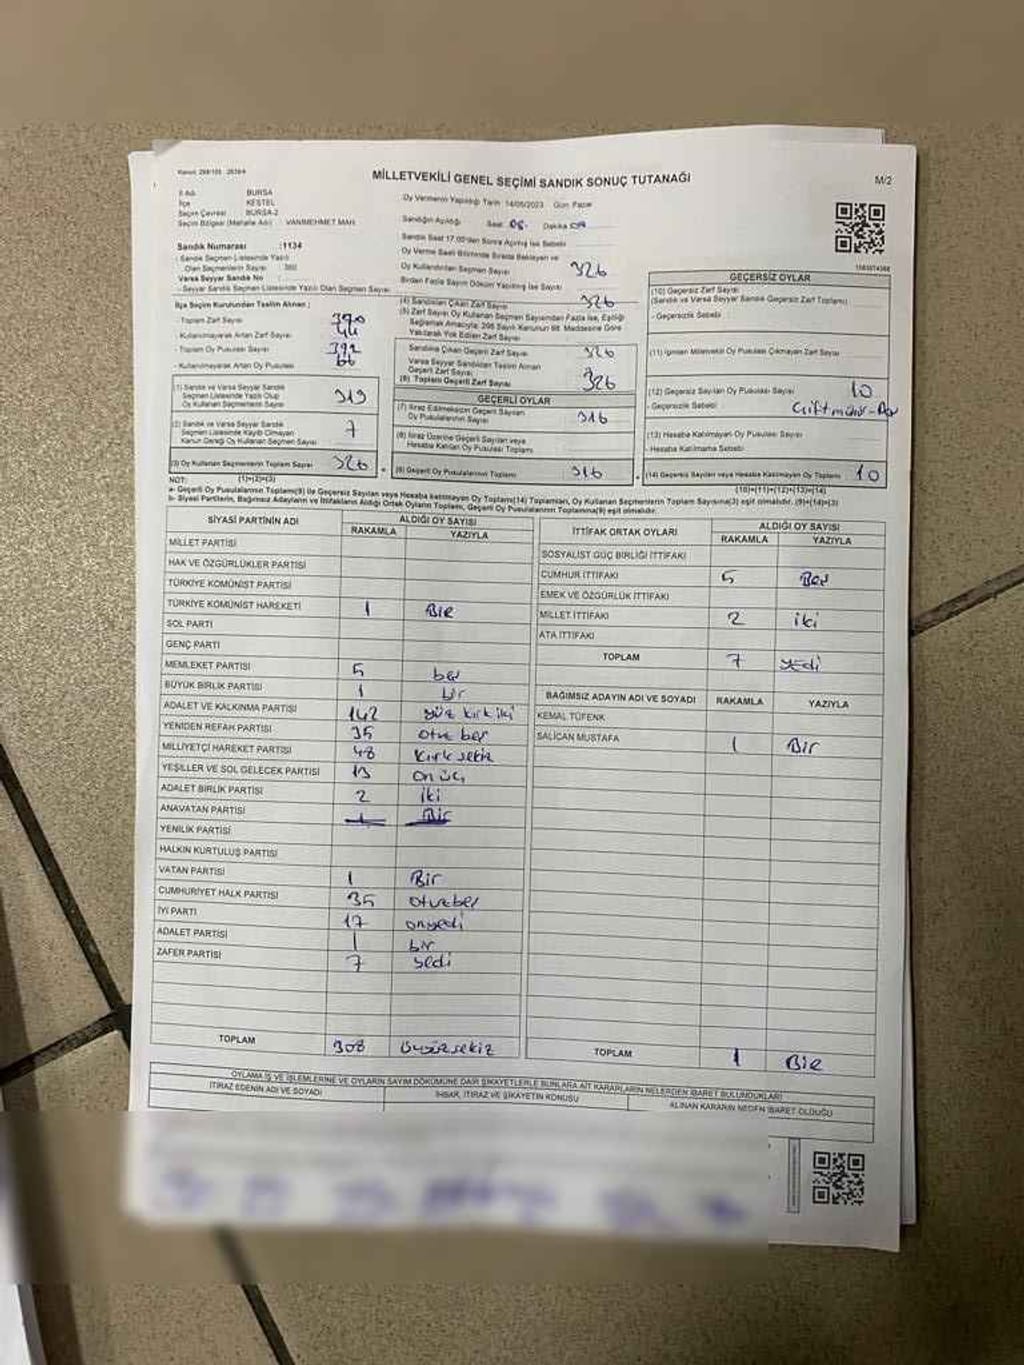 Kanun: 298/105 - 2839/4
MİLLETVEKİLİ GENEL SEÇİMİ SANDIK SONUÇ TUTANAĞI
M/2
İl Adı BURSA
İlçe KESTEL
Seçim Çevresi BURSA-2
Seçim Bölgesi (Mahalle Adı) : VANİMEHMET MAH.
Oy Vermenin Yapıldığı Tarih 14/05/2023 Gün Pazar
Sandığın Açıldığı Saat 08. Dakika
Sandık Saat 17.00'den Sonra Açılmış İse Sebebi
Sandık Numarası :1134
- Sandık Seçmen Listesinde Yazılı
Olan Seçmenlerin Sayısı
Varsa Seyyar Sandık No
- Seyyar Sandık Seçmen Listesinde Yazılı Olan Seçmen Sayısı
Oy Verme Saati Bitiminde Sırada Bekleyen ve
Oy Kullandırılan Seçmen Sayısı 326
Birden Fazla Sayım Döküm Yapılmış İse Sayısı
İlçe Seçim Kurulundan Teslim Alınan :
- Toplam Zarf Sayısı 370
- Kullanılmayarak Artan Zarf Sayısı 44
- Toplam Oy Pusulası Sayısı 392
- Kullanılmayarak Artan Oy Pusulası 66
(1) Sandık ve Varsa Seyyar Sandık
Seçmen Listesinde Yazılı Olup
Oy Kullanan Seçmenlerin Sayısı 319
(2) Sandık ve Varsa Seyyar Sandık
Seçmen Listesinde Kaydı Olmayan
Kanun Gereği Oy Kullanan Seçmen Sayısı 7
(3) Oy Kullanan Seçmenlerin Toplam Sayısı 326
(1)+(2)=(3)
(4) Sandıktan Çıkan Zarf Sayısı 326
(5) Zarf Sayısı Oy Kullanan Seçmen Sayısından Fazla İse, Eşitliği
Sağlamak Amacıyla, 298 Sayılı Kanunun 98. Maddesine Göre
Yakılarak Yok Edilen Zarf Sayısı
Sandıkta Çıkan Geçerli Zarf Sayısı 326
Varsa Seyyar Sandıktan Teslim Alınan
Geçerli Zarf Sayısı
(6) Toplam Geçerli Zarf Sayısı 326
GEÇERLİ OYLAR
(7) İtiraz Edilmeksizin Geçerli Sayılan
Oy Pusulalarının Sayısı 316
(8) İtiraz Üzerine Geçerli Sayılan veya
Hesaba Katılan Oy Pusulası Toplamı
(9) Geçerli Oy Pusulalarının Toplamı 316
GEÇERSİZ OYLAR
(10) Geçersiz Zarf Sayısı
(Sandık ve Varsa Seyyar Sandık Geçersiz Zarf Toplamı)
- Geçersizlik Sebebi
(11) İçinden Milletvekili Oy Pusulası Çıkmayan Zarf Sayısı
(12) Geçersiz Sayılan Oy Pusulası Sayısı 10
- Geçersizlik Sebebi
(13) Hesaba Katılmayan Oy Pusulası Sayısı
- Hesaba Katılmama Sebebi
(14) Geçersiz Sayılan veya Hesaba Katılmayan Oy Toplamı 10
(10)+(11)+(12)+(13)=(14)
NOT:
a- Geçerli Oy Pusulalarının Toplamı(9) ile Geçersiz Sayılan veya Hesaba katılmayan Oy Toplamı(14) Toplamları, Oy Kullanan Seçmenlerin Toplam Sayısına(3) eşit olmalıdır. (9)+(14)=(3)
b- Siyasi Partilerin, Bağımsız Adayların ve İttifakların Aldığı Ortak Oyların Toplamı, Geçerli Oy Pusulalarının Toplamına(9) eşit olmalıdır.
SİYASİ PARTİNİN ADI ALDIĞI OY SAYISI
RAKAMLA YAZIYLA
MİLLET PARTİSİ
HAK VE ÖZGÜRLÜKLER PARTİSİ
TÜRKİYE KOMÜNİST PARTİSİ
TÜRKİYE KOMÜNİST HAREKETİ 1 Bir
SOL PARTİ
GENÇ PARTİ
MEMLEKET PARTİSİ 5 beş
BÜYÜK BİRLİK PARTİSİ 1 bir
ADALET VE KALKINMA PARTİSİ 142 yüz kırk iki
YENİDEN REFAH PARTİSİ 35 otuz beş
MİLLİYETÇİ HAREKET PARTİSİ 48 Kırk sekiz
YEŞİLLER VE SOL GELECEK PARTİSİ 13 on üç
ADALET BİRLİK PARTİSİ 2 iki
ANAVATAN PARTİSİ 1 Bir
YENİLİK PARTİSİ
HALKIN KURTULUŞ PARTİSİ
VATAN PARTİSİ 1 Bir
CUMHURİYET HALK PARTİSİ 35 otuzbeş
İYİ PARTİ 17 onyedi
ADALET PARTİSİ 1 bir
ZAFER PARTİSİ 7 yedi
TOPLAM 308 üçyüzsekiz
İTTİFAK ORTAK OYLARI ALDIĞI OY SAYISI
RAKAMLA YAZIYLA
SOSYALİST GÜÇ BİRLİĞİ İTTİFAKI
CUMHUR İTTİFAKI 5 Beş
EMEK VE ÖZGÜRLÜK İTTİFAKI
MİLLET İTTİFAKI 2 iki
ATA İTTİFAKI
TOPLAM 7 yedi
BAĞIMSIZ ADAYIN ADI VE SOYADI RAKAMLA YAZIYLA
KEMAL TÜFENK
SALİCAN MUSTAFA 1 Bir
TOPLAM 1 Bir
OYLAMA İŞ VE İŞLEMLERİNE VE OYLARIN SAYIM DÖKÜMÜNE DAİR ŞİKAYETLERLE BUNLARA AİT KARARLARIN NELERDEN İBARET BULUNDUKLARI
İTİRAZ EDENİN ADI VE SOYADI
İHBAR, İTİRAZ VE ŞİKAYETİN KONUSU
ALINAN KARARIN NEDEN İBARET OLDUĞU